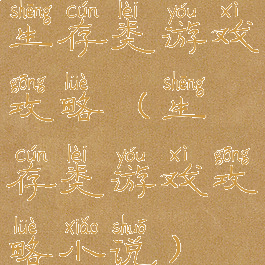 shēng cún lèi yóu xì
生存类游戏
gōng lüè shēng
攻略（生
cún lèi yóu xì gōng
存类游戏攻
lüè xiǎo shuō
略小说）